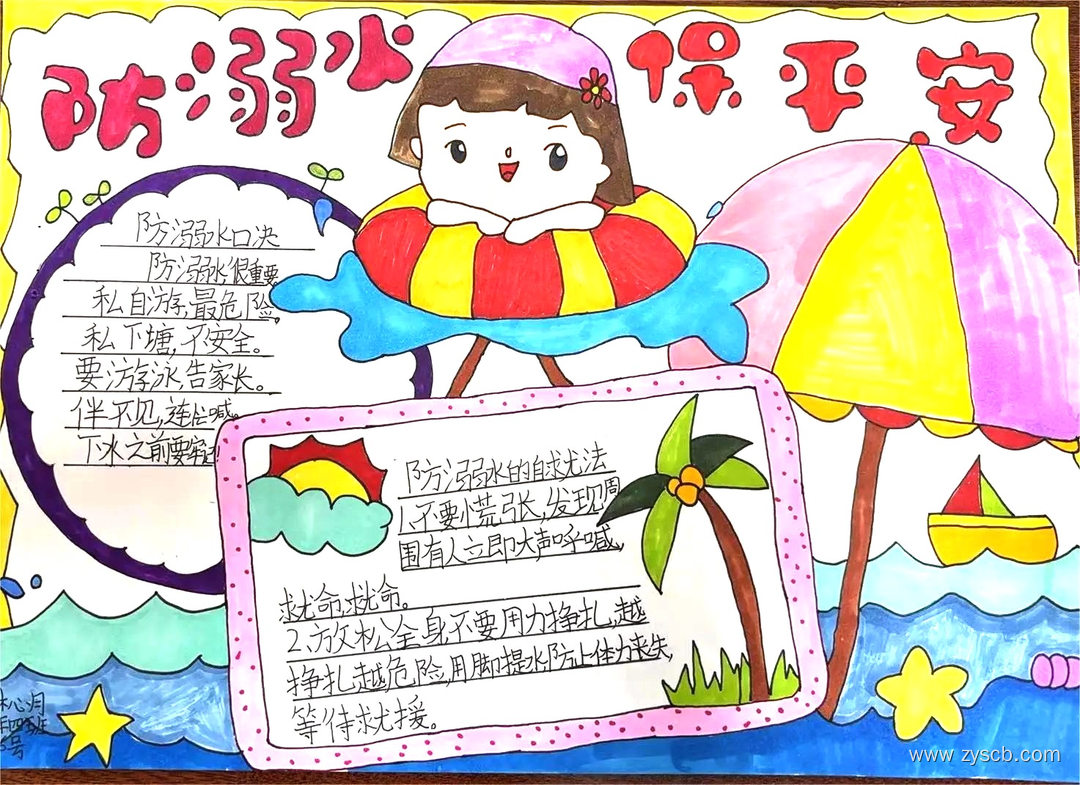 防溺水 保平安
防溺水口决
防溺水,很重要,
私自游,最危险,
私下塘,不安全。
要游泳,告家长。
伴不见,连忙喊。
下水之前要牢记!
防溺水的自求尤法
1.不要慌张,发现周
围有人立即大声呼喊,
救命,救命。
2.放松全身不要用力挣扎,越
挣扎越危险,用脚提水防止体力来失,
等待救援。
心月
四班
5号
www.zyscb.com